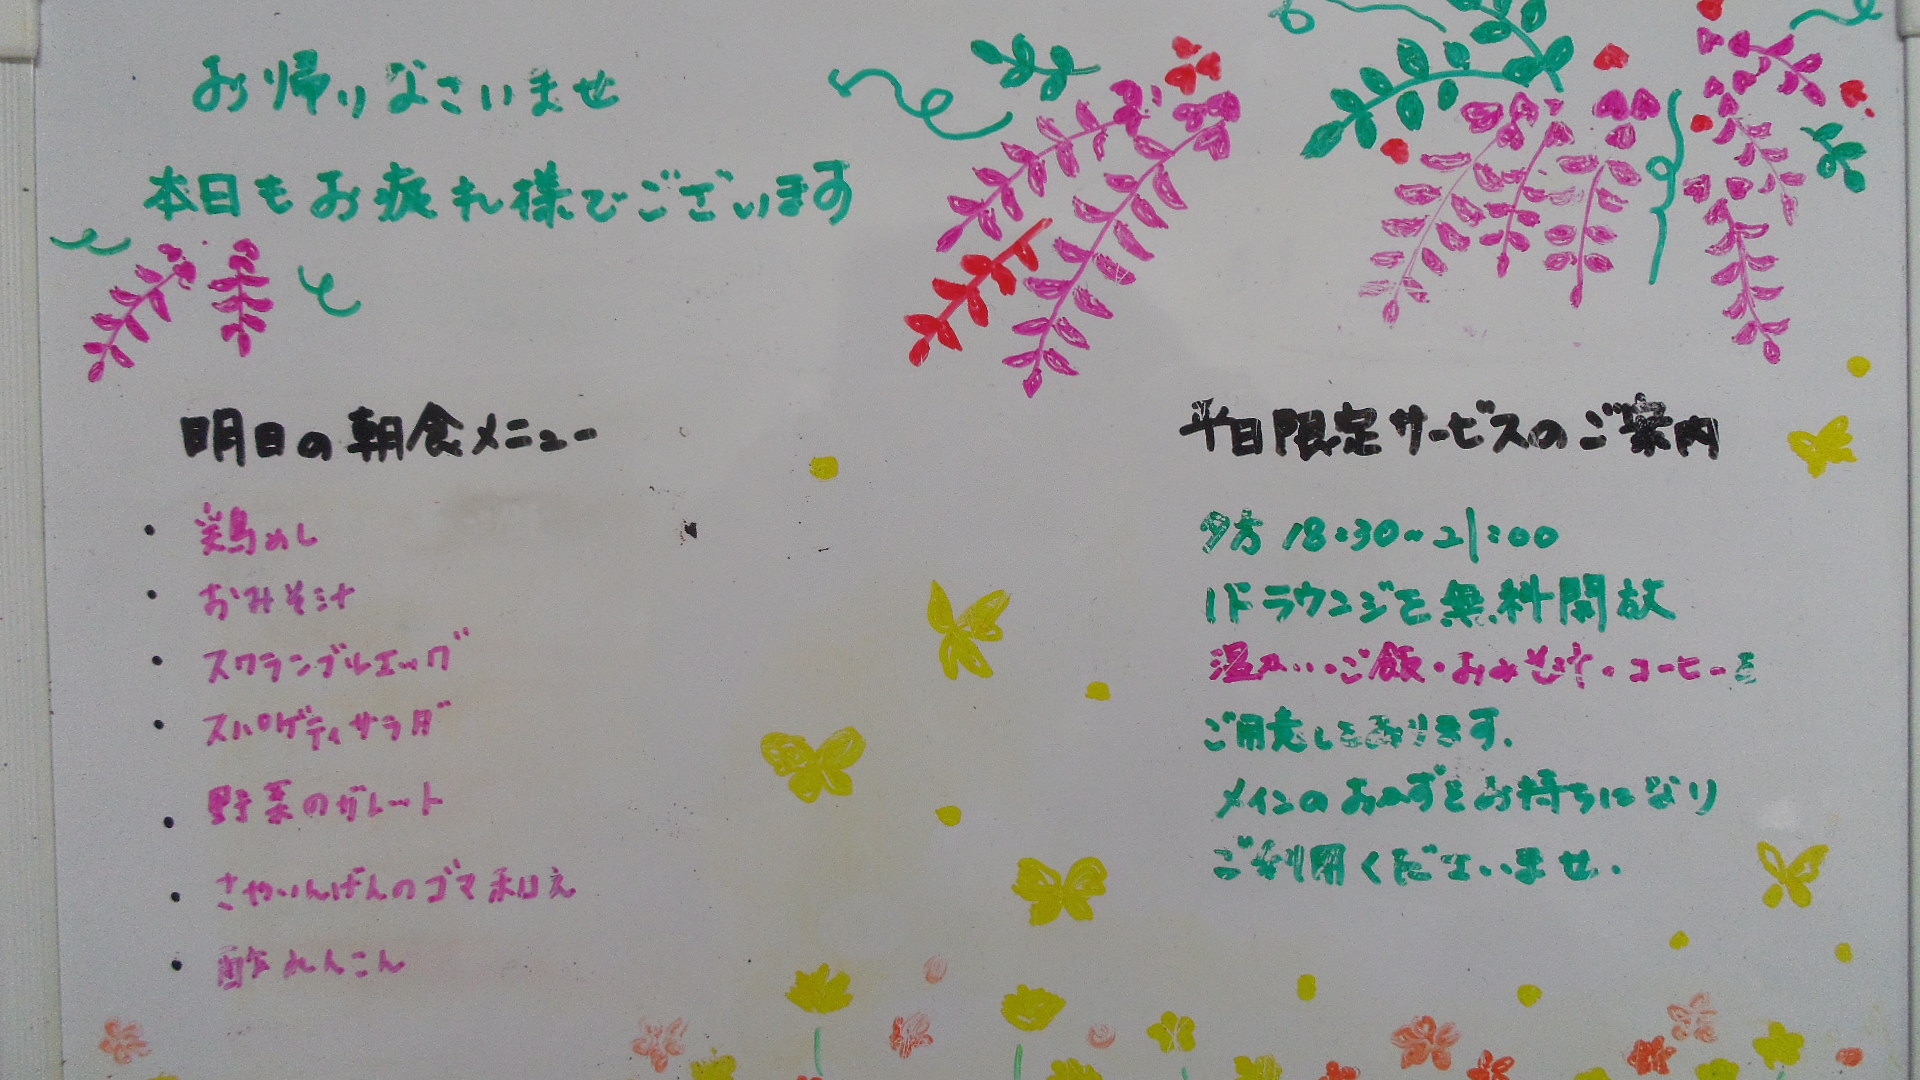 お帰りなさいませ
本日もお疲れ様でございます
明日の朝食メニュー
・鶏めし
・おみそ汁
・スクランブルエッグ
・スパゲティサラダ
・野菜のガレット
・さやいんげんのゴマ和え
・酢れんこん
平日限定サービスのご案内
夕方 18:30~21:00
1Fラウンジを無料開放
温かいご飯・おみそ汁・コーヒーを
ご用意しております。
メインのおかずをお持ちになり
ご利用くださいませ.